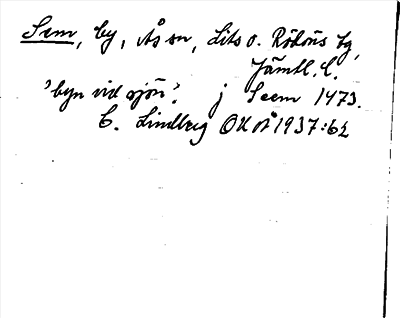 Sem, by, Ås sn, Lits o. Rödöns tg,
Jämtl. l.
'byn vid sjön'. j Seem 1473.
C. Lindberg OUÅ 1937:62